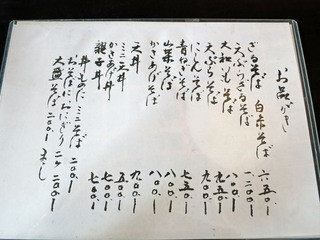 お品がき
ざるそば 白糸そば 六五〇
天ぷらざるそば 一二〇〇
大和いもそば 八〇〇
天ぷらそば 九五〇
にしんそば 九〇〇
青ねぎそば 七五〇
山菜そば 八〇〇
かきあげそば 八〇〇
天丼 九〇〇
ミニ天丼 五〇〇
かきあげ丼 七〇〇
親子丼 七〇〇
丼ものにミニそば 二〇〇
おそばにおにぎり二ケ 二〇〇
大盛そば 二〇〇